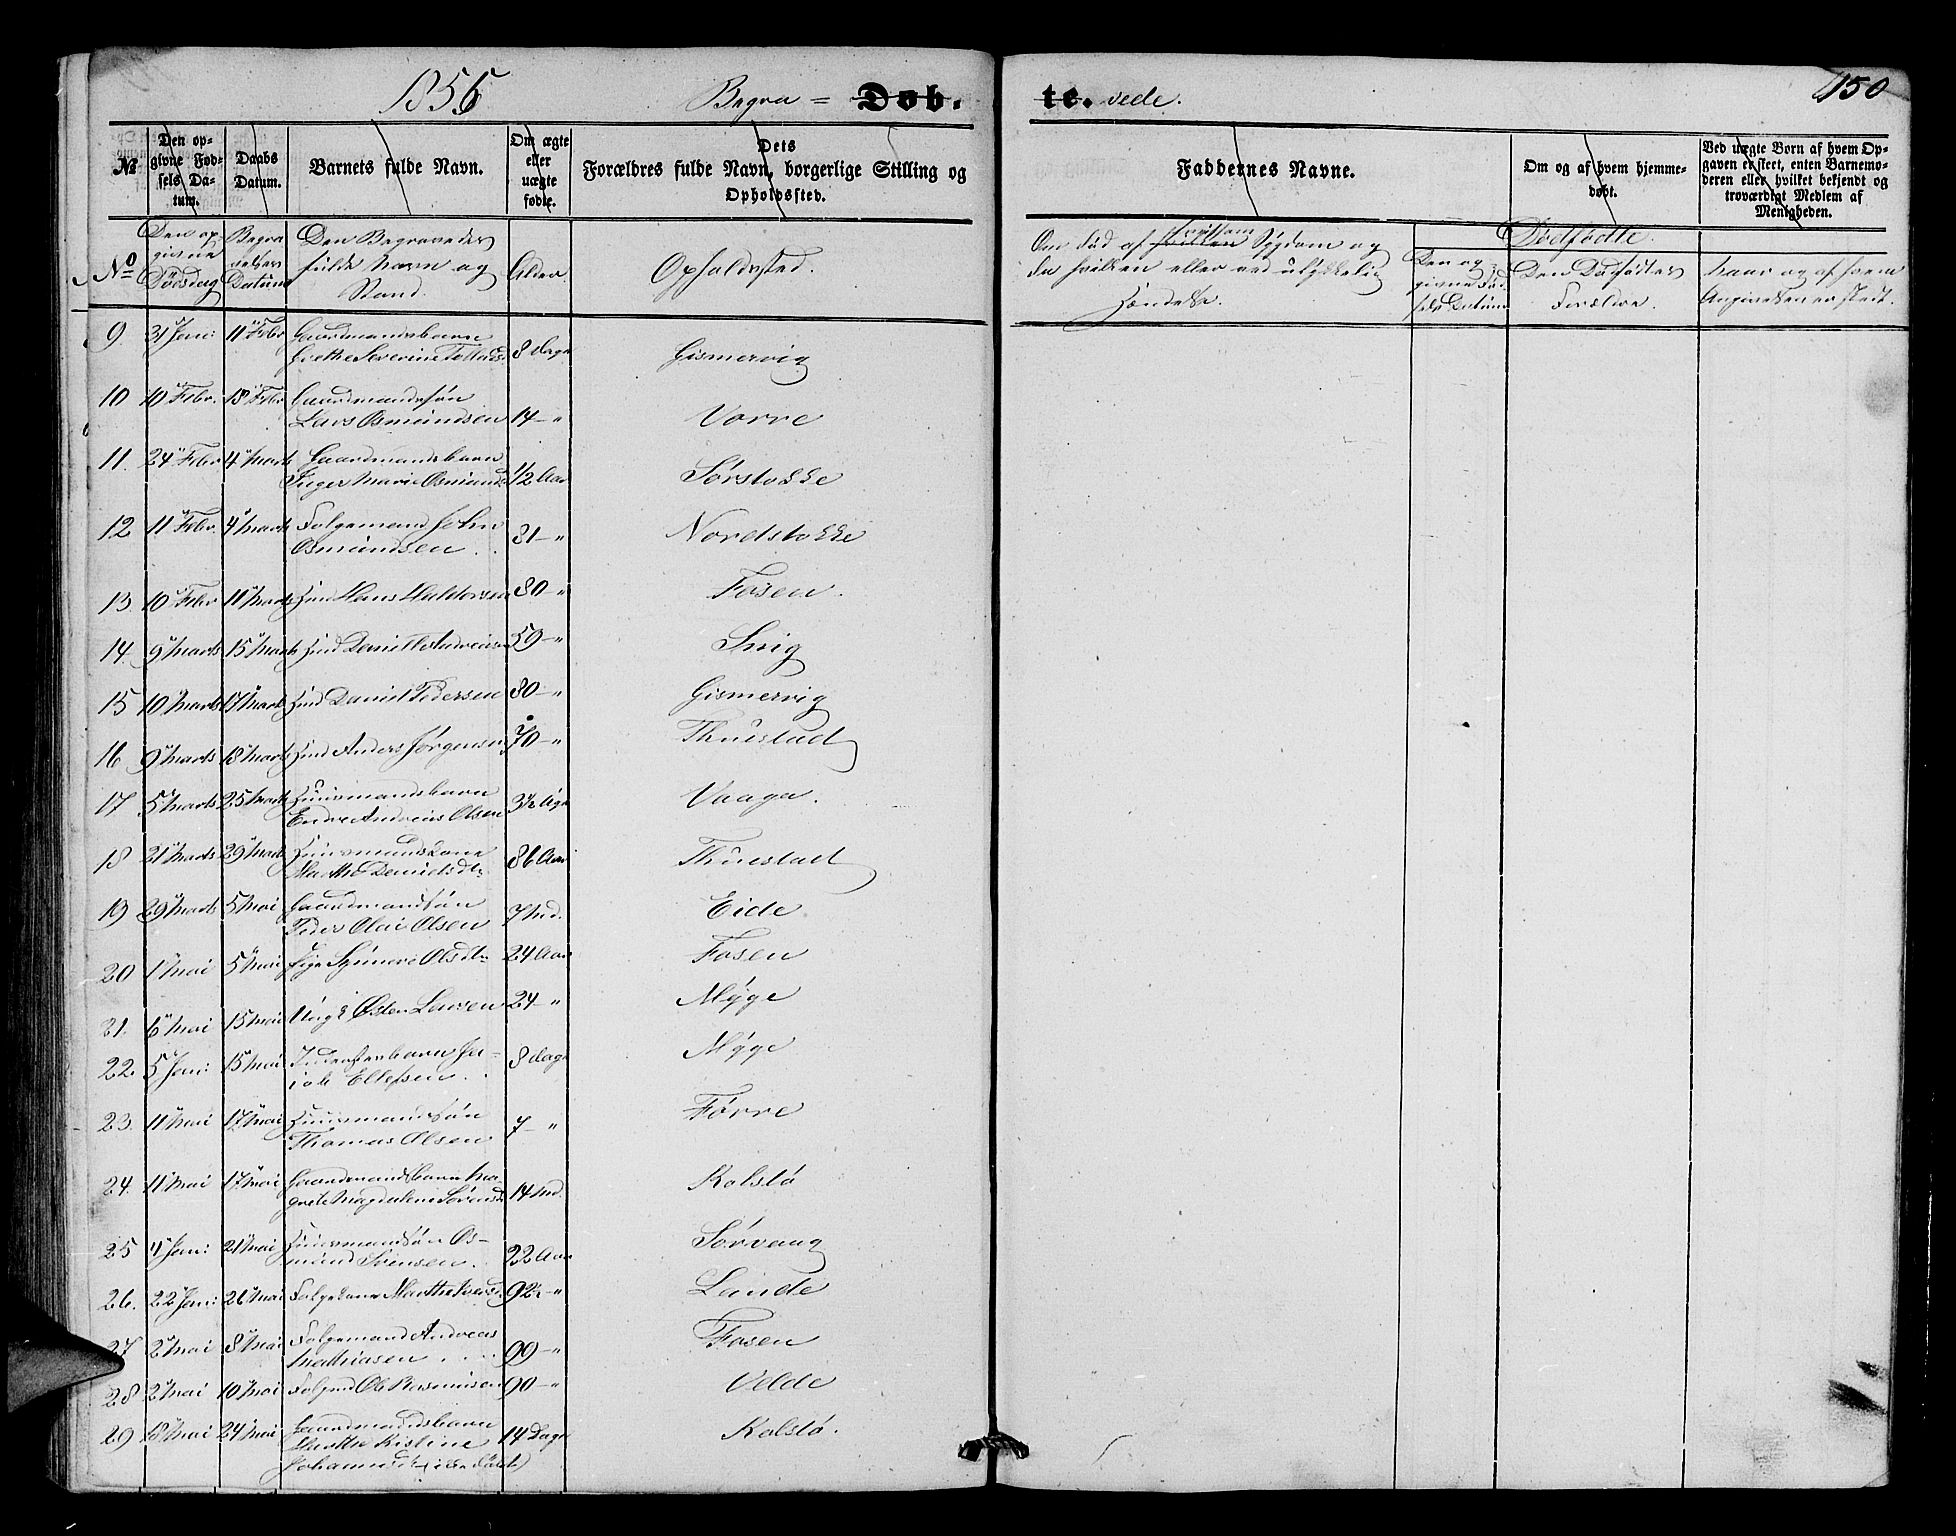 1856 Begra = Døb. te. vede. 150
№
Den opgivne Fødsels Datum.
Daabs Datum.
Barnets fulde Navn.
Om ægte eller uægte fødte.
Dets Forældres fulde Navn, borgerlige Stilling og Opholdssted.
Faddernes Navne.
Om og af hvem hjemmedøbt.
Ved uægte Børn af hvem Opgaven er skeet, enten Barnemoderen eller hvilket bekjendt og troværdigt Medlem af Menigheden.
No
Den opgivne Dødsdag
Begravelses Datum
Den Begravedes fulde Navn og Stand.
Alder.
Opholdssted.
Om død af hvilken Sygdom og da hvilken eller ved ulykkelig Hændelse.
Dødfødte.
Den opgivne Fødsels Datum
Den Dødfødtes Forældre.
Naar og af hvem Angivelsen er skedt.
9 31 Jani 11 Febr Gaardmandsbarn
Grethe Severine 8 Dage Gismervig
10 10 Febr. 18 Febr Gaardmandssøn
Lars Osmundsen 14 – " Vorre
11. 24 Febr 4 Marts Gaardmandsbarn
Inger Marie Osmunds 1/2 Aar Sørstokke
12 11 Febr. 4 Marts Folgemand John
Osmundsen . . 81 – " Nordstokke
13. 10 Febr 11 Marts Hans Haldorsen 80 – " Fosen.
14. 9 Marts 15 Marts 59 – " Snig
15 10 Marts 17 Marts Daniel Pedersen 80 – " Gismervig
16 9 Marts 18 Marts Anders Jørgensen 70 – " Thuestad
17 5 Marts 25 Marts Huusmandsbarn
Endre Andreas Olsen 3 1/2 Vaaga.
18 21 Marts 29 Marts Huusmandskone
Marthe Danielsdtr 86 Aar Thuestad
19 29 Marts 5 Mai Gaardmandssøn
Peder Olai Olsen 7 Md. Eide
20 1 Mai 5 Mai Pige Synneve Olsdtr 24 Aar Fosen
21. 6 Mai 15 Mai Ungk Østen Larsen 24 – " Myge
22. 5 Jani 15 Mai Inderstebarn Ja-
cob Ellefsen . . 8 Dage Myge
23. 11 Mai 17 Mai Huusmandssøn
Thomas Olsen 7 – " Førre
24. 11 Mai 17 Mai Gaardmandsbarn Ma-
grete Magdalene Sørensd 14 Md. Kolstø
25 4 Jani 21 Mai Huusmandsøn Os-
mund Svensen . 22 Aar Sørvaag
26. 22 Jani 26 Mai Folgekone Marthe Iversd. 92 – " Lande
27 2 Mai 8 Mai Folgemand Andreas
Mathiasen . . . . 99 – " Fosen
28 2 Mai 10 Mai Ole Rasmusen 90 – " Velde
29 18 Mai 24 Mai Gaardmandsbarn
Marthe Kistine 14 Dage Kolstø.
Johannesdt